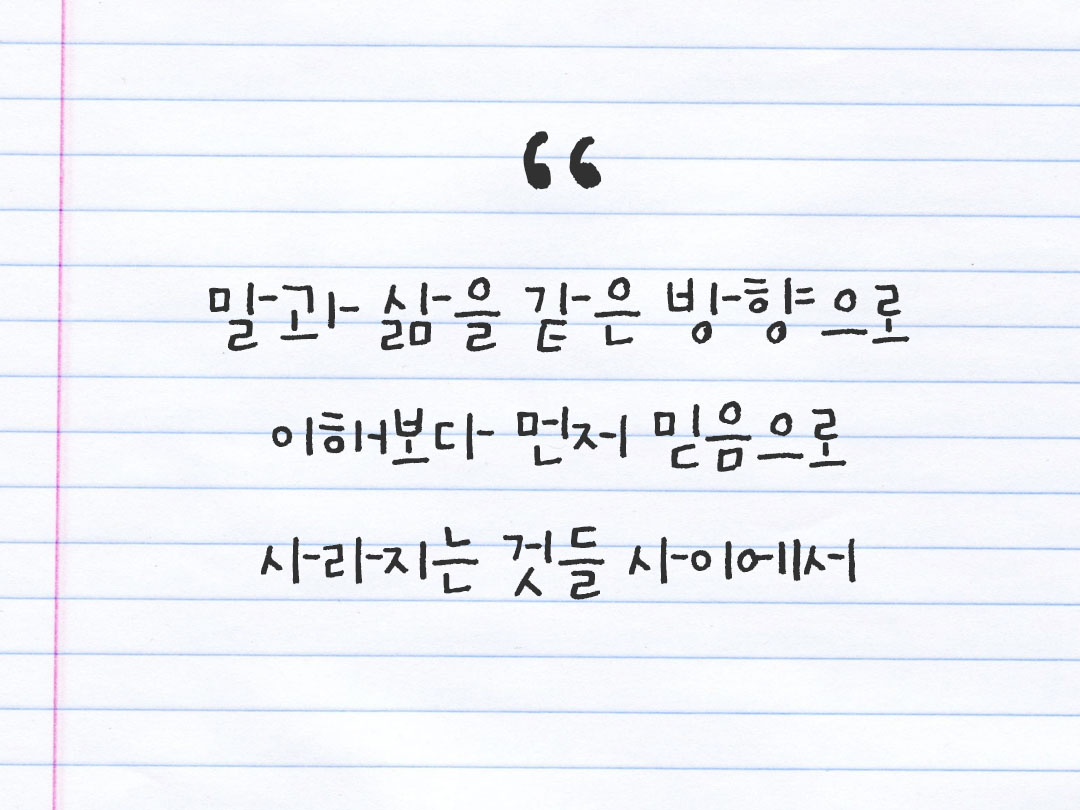 “
말과 삶을 같은 방향으로
이해보다 먼저 믿음으로
사라지는 것들 사이에서